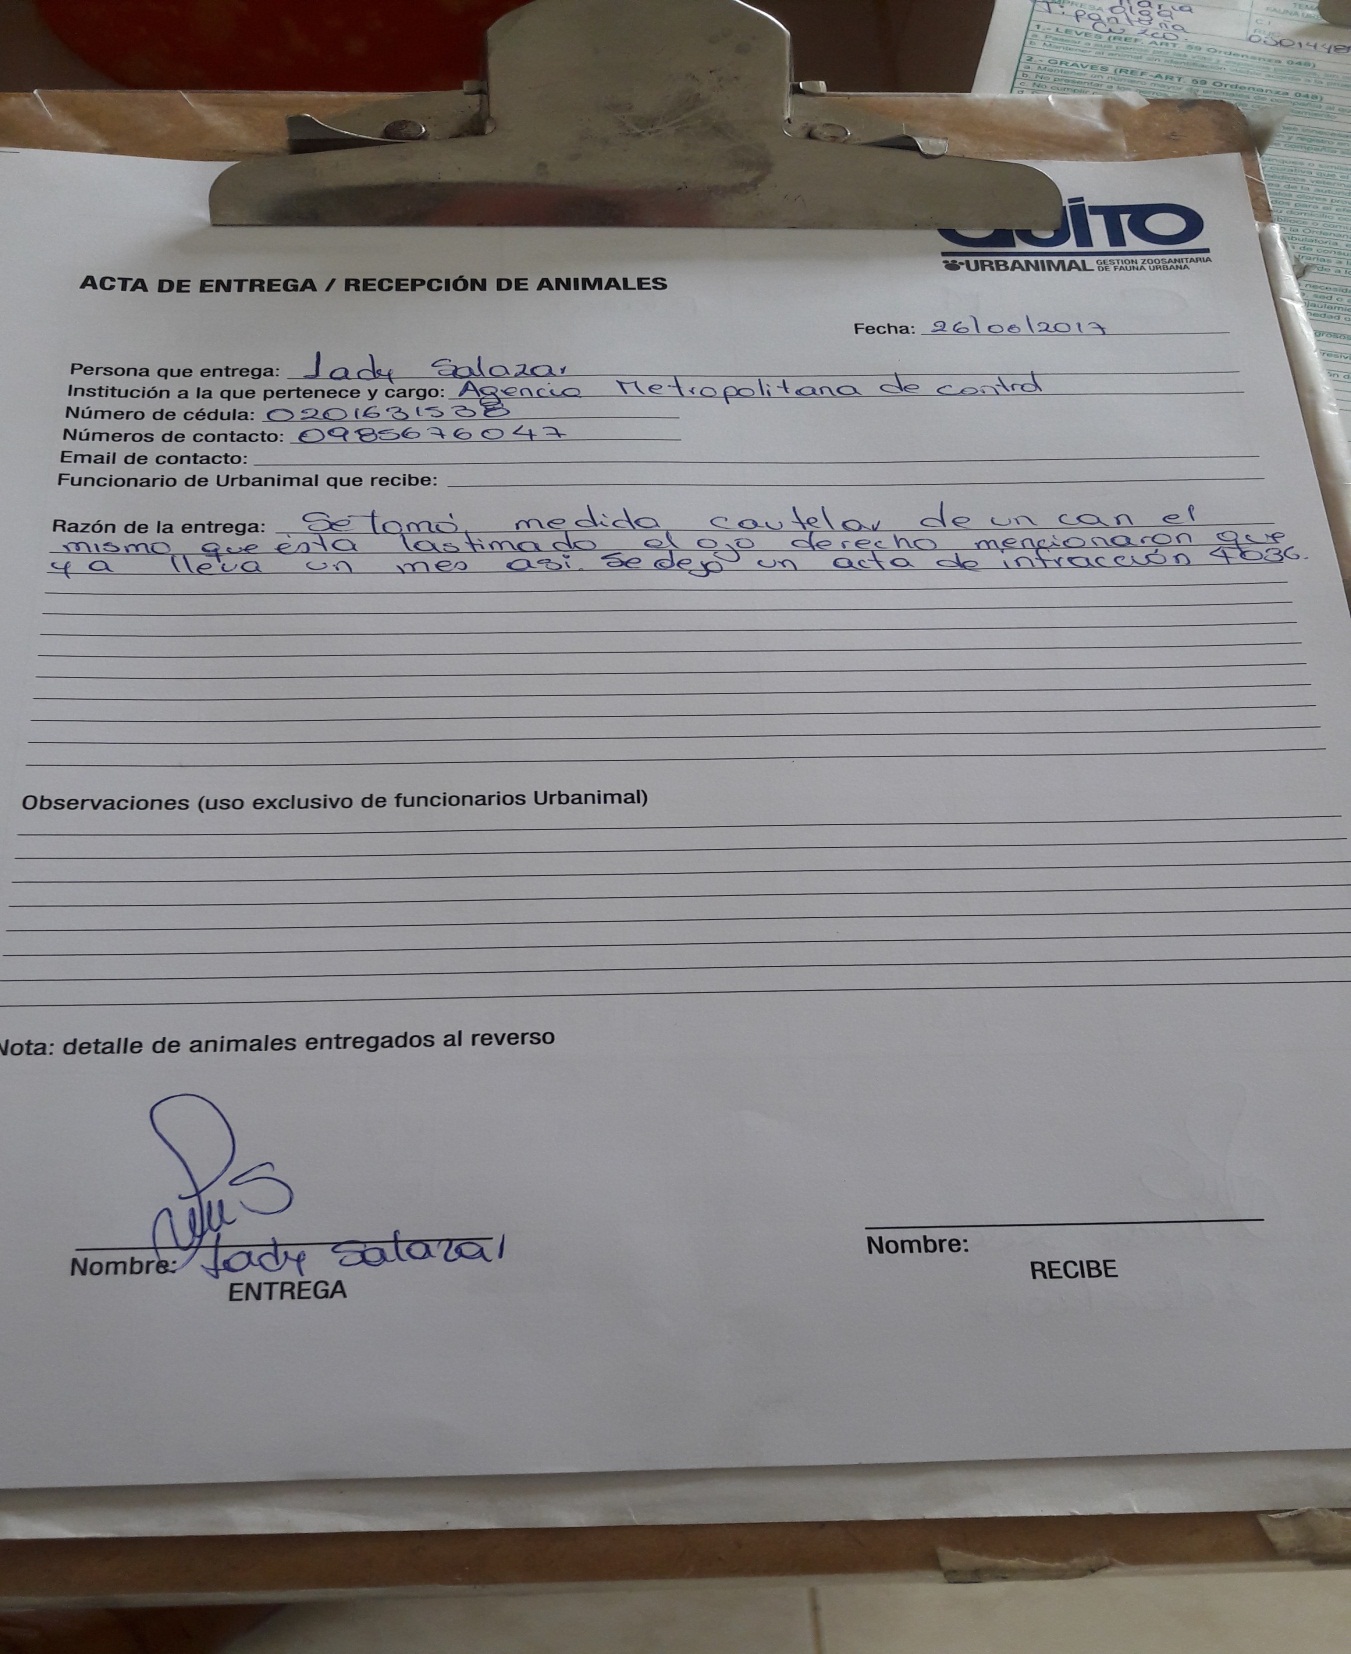 QUITO
URBANIMAL GESTIÓN ZOOSANITARIA
DE FAUNA URBANA
ACTA DE ENTREGA / RECEPCIÓN DE ANIMALES
Fecha: 26/06/2017
Persona que entrega: Lady Salazar
Institución a la que pertenece y cargo: Agencia Metropolitana de control
Número de cédula: 0201631538
Números de contacto: 0985676047
Email de contacto:
Funcionario de Urbanimal que recibe:
Razón de la entrega: Se tomó medida cautelar de un can el
mismo que ésta lastimado el ojo derecho mencionaron que
ya lleva un mes asi. Se dejó un acta de infracción 4636.
Observaciones (uso exclusivo de funcionarios Urbanimal)
Nota: detalle de animales entregados al reverso
Nombre: Lady Salazar
ENTREGA
Nombre:
RECIBE
1.- LEVES (REF. ART. 59 Ordenanza 048)
2.- GRAVES (REF-ART. 59 Ordenanza 048)